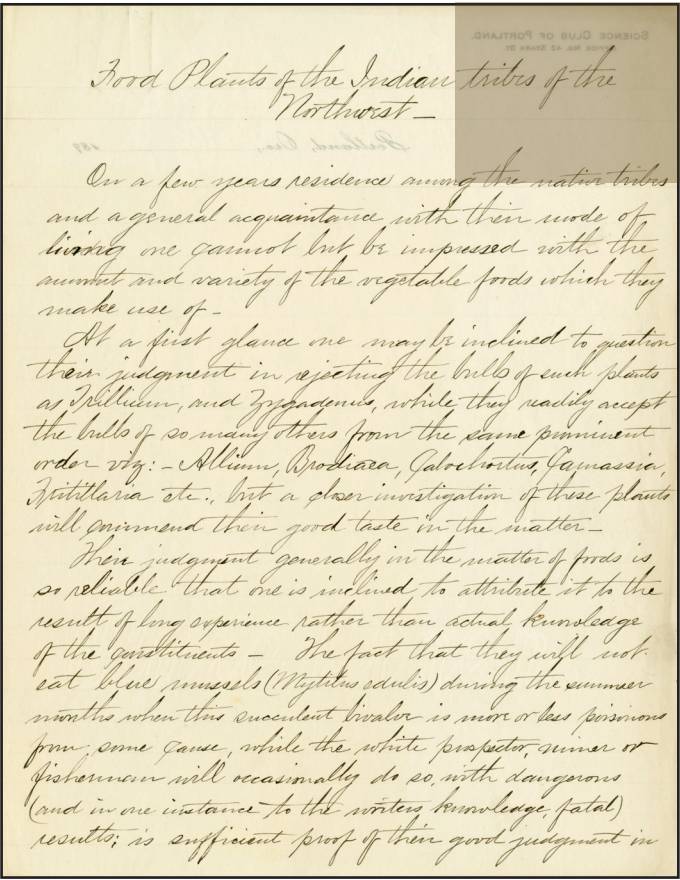 SCIENCE CLUB OF PORTLAND.
OFFICE NO. 42 STARK ST.
Food Plants of the Indian tribes of the
Northwest –
Portland, Ore., 189
On a few years residence among the native tribes
and a general acquaintance with their mode of
living one cannot but be impressed with the
amount and variety of the vegetable foods which they
make use of –
At a first glance one may be inclined to question
their judgment in rejecting the bulbs of such plants
as Trillium, and Zygadenus, while they readily accept
the bulbs of so many others from the same prominent
order viz: – Allium, Brodiaea, Calochortus, Camassia,
Fritillaria etc., but a closer investigation of these plants
will commend their good taste in the matter –
Their judgment generally in the matter of foods is
so reliable that one is inclined to attribute it to the
result of long experience rather than actual knowledge
of the constituents – The fact that they will not
eat blue mussels (Mytilus edulis) during the summer
months when this succulent bivalve is more or less poisonous
from some cause, while the white prospector, miner or
fisherman will occasionally do so, with dangerous
(and in one instance to the writers knowledge, fatal)
results; is sufficient proof of their good judgment in